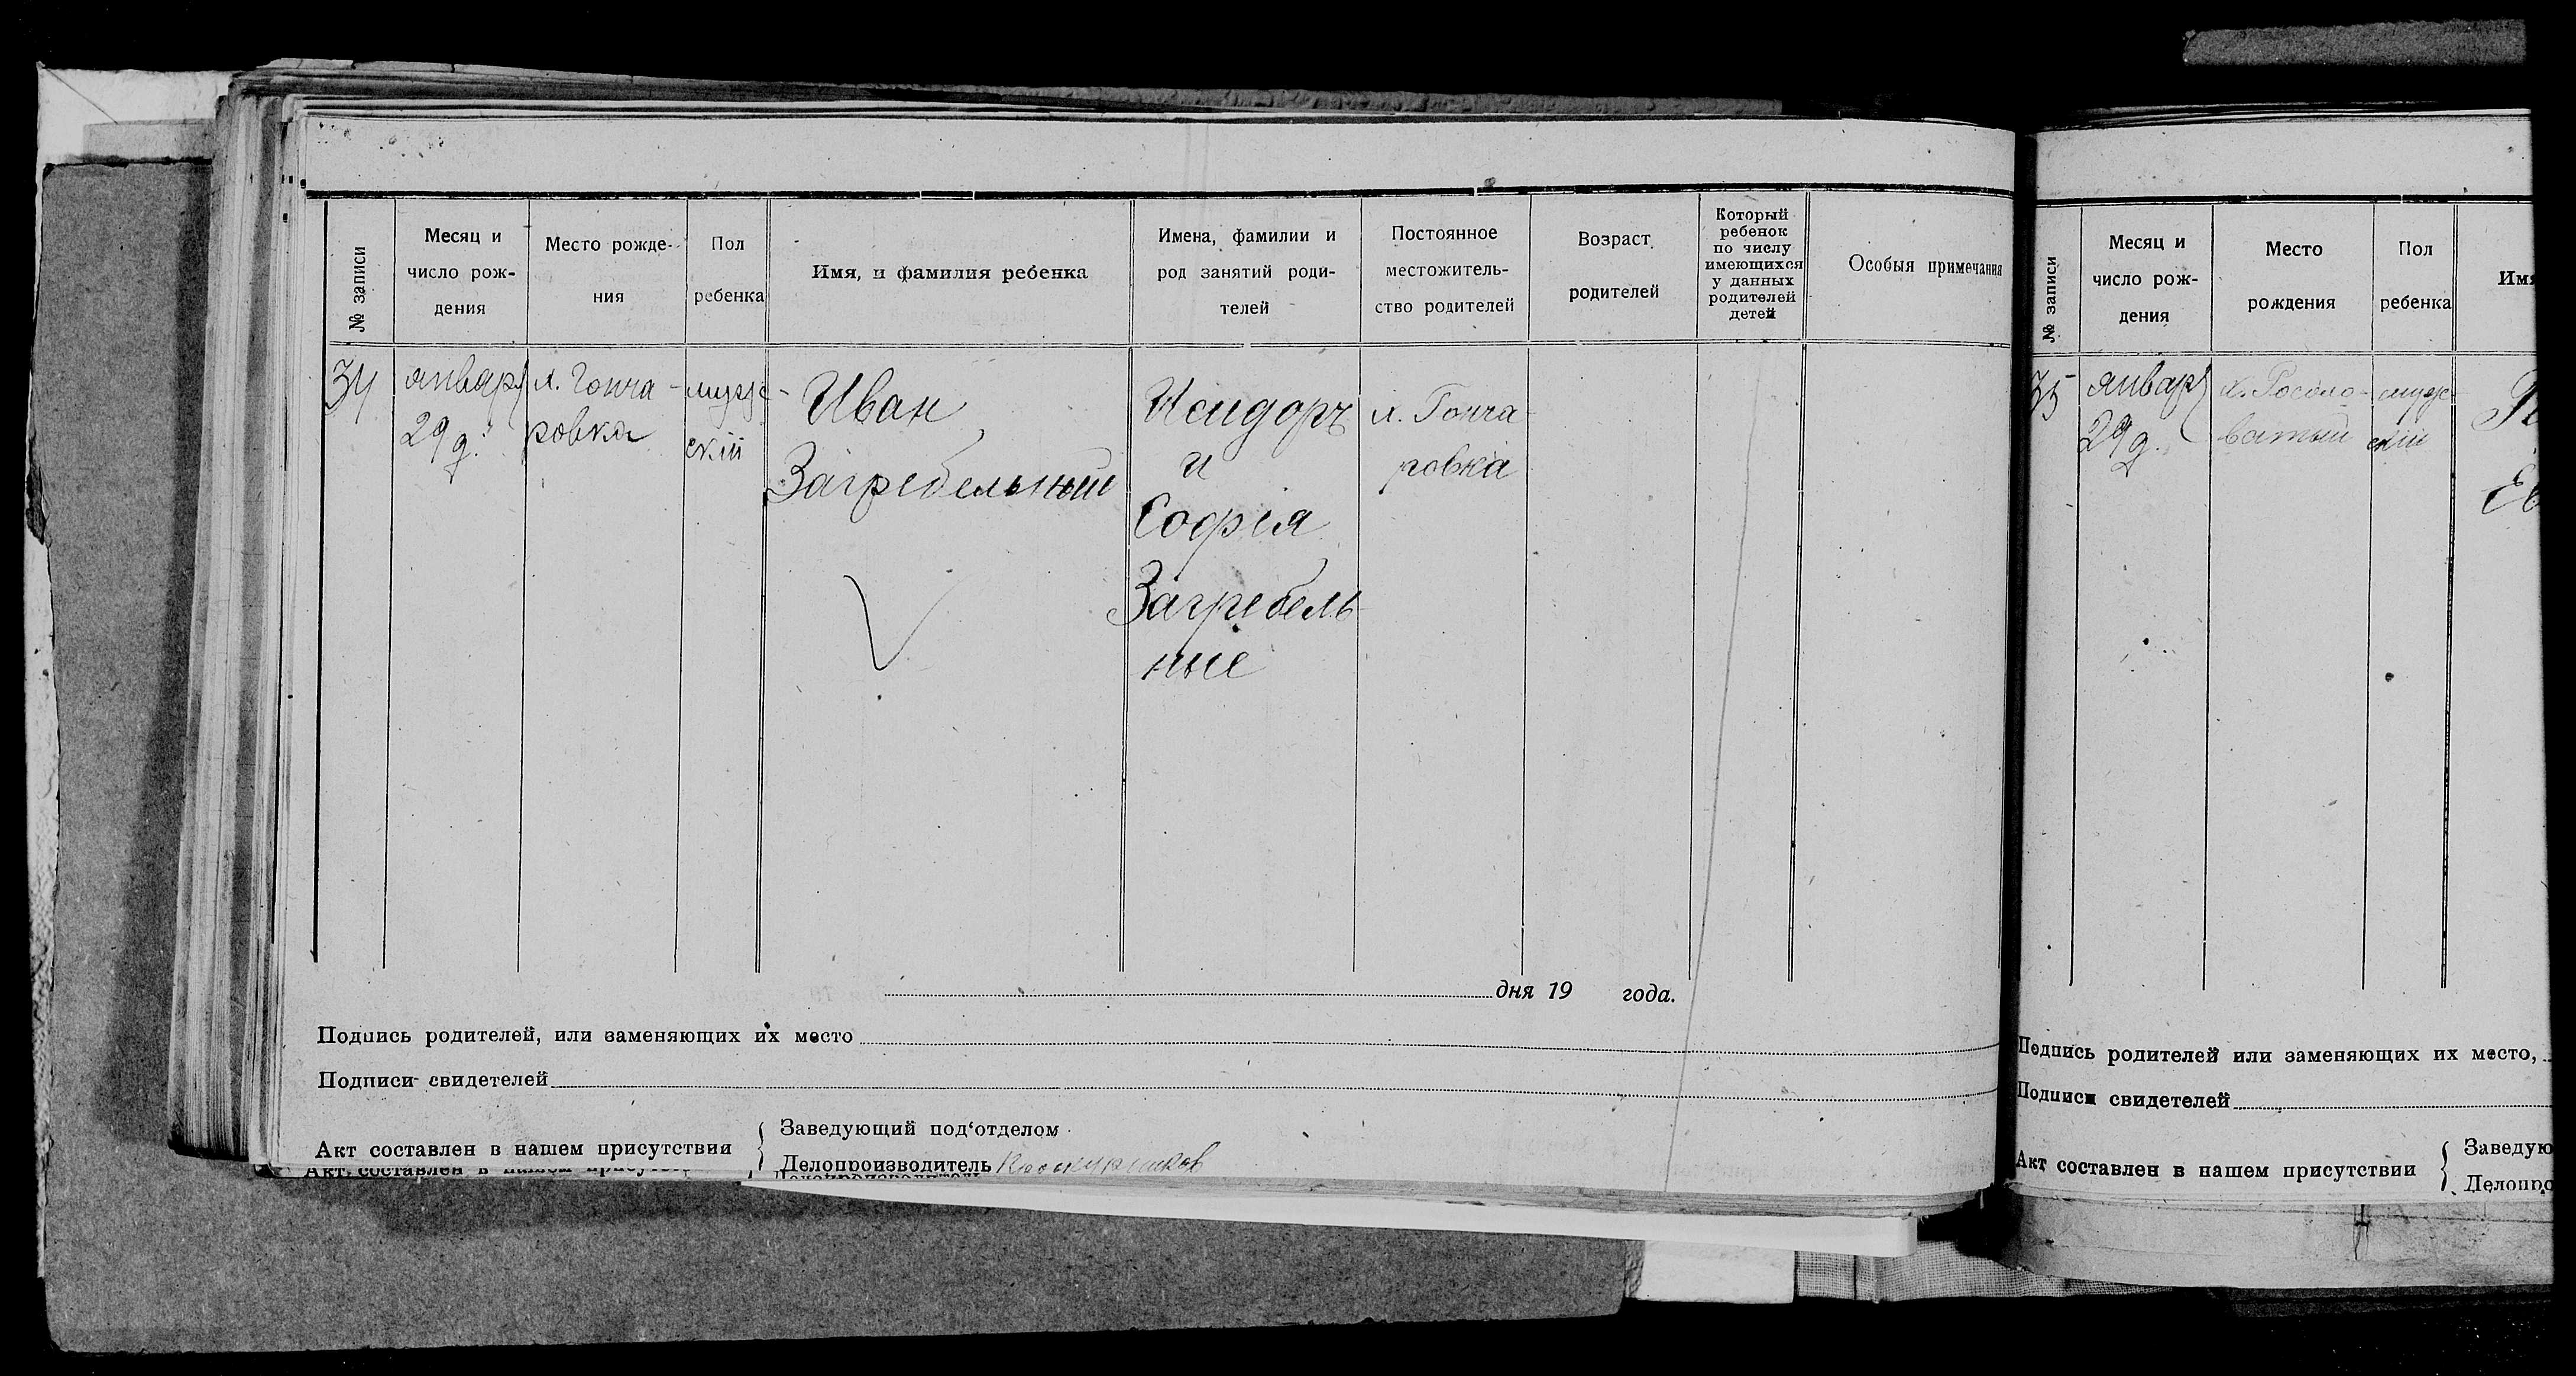 № записи
Месяц и
число рож-
дения
Место рожде-
ния
Пол
ребенка
Имя, и фамилия ребенка
Имена, фамилии и
род занятий роди-
телей
Постоянное
местожитель-
ство родителей
Возраст
родителей
Который
ребенок
по числу
имеющихся
у данных
родителей
детей
Особыя примечания
34
январ
29 д.
х. Гонча-
ровка
мужс-
скій
Иван
Загребельный
Исидоръ
и
Софія
Загребель
ные
х. Гонча-
ровка
дня 19 года.
Подпись родителей, или заменяющих их место
Подписи свидетелей
Акт составлен в нашем присутствии
Заведующий под‘отделом
Делопроизводитель
№ записи
Месяц и
число рож-
дения
Место
рождения
Пол
ребенка
Имя
35
январ
29 д.
мужс-
кій
Подпись родителей или заменяющих их место,
Подписи свидетелей
Акт составлен в нашем присутствии
Заведую
Делопро